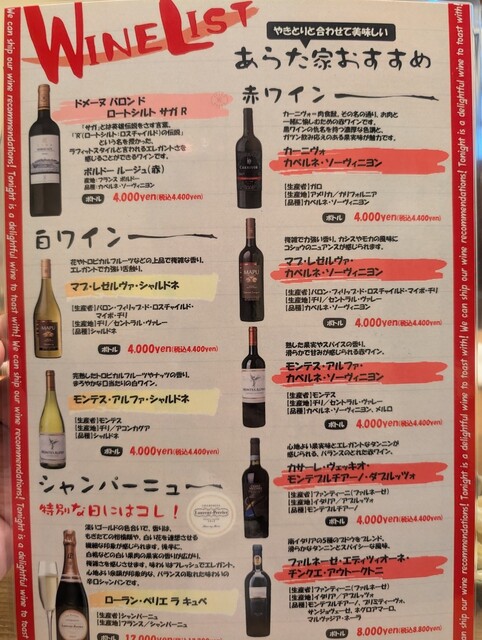 WINE LIST
やきとりと合わせて美味しい
あらた家おすすめ
ドメーヌ バロンド
ロートシルト サガ R
「サガ」とは英雄伝説をさす言葉。
「"R"(ロートシルト:ロスチャイルド)の伝説」
という名を授かった、
ラフィットスタイルと言われるエレガントさを
感じることができるワインです。
ボルドー ルージュ(赤)
産地:フランス ボルドー
品種:カベルネ・ソーヴィニヨン
ボトル 4.000yen(税込4.400yen)
白ワイン
エレガントで力強い舌触り。
マプ・レゼルヴァ・シャルドネ
[生産者]バロン・フィリップ・ド・ロスチャイルド・
マイポ・チリ
[生産地]チリ/セントラル・ヴァレー
[品種]シャルドネ
ボトル 4.000yen(税込4.400yen)
完熟したトロピカルフルーツやナッツの香り。
まろやかな口当たりの白ワイン。
モンテス・アルファ・シャルドネ
[生産者]モンテス
[生産地]チリ/アコンカグア
[品種]シャルドネ
ボトル 4.000yen(税込4.400yen)
シャンパーニュ
特別な日にはコレ!
深いゴールドの色合いで、香りは、
辛口シャンパンです。
ローラン・ペリエ ラ キュベ
[生産者]シャンパーニュ
[生産地]フランス/シャンパーニュ
赤ワイン
カーニヴォ=肉食獣。その名の通り、お肉と
一緒に愉しむための赤ワインです。
黒ワインの仇名を持つ濃厚な色調と、
ガツン飲み応えのある果実味が魅力です。
カーニヴォ
カベルネ・ソーヴィニヨン
[生産者]ガロ
[生産地]アメリカ/カリフォルニア
[品種]カベルネ・ソーヴィニヨン
ボトル 4.000yen(税込4.400yen)
複雑で力強い香り。カシスやモカの風味に
コショウのニュアンスが感じられます。
マプ・レゼルヴァ・
カベルネ・ソーヴィニヨン
[生産者]バロン・フィリップ・ド・ロスチャイルド・マイポ・チリ
[生産地]チリ/セントラル・ヴァレー
[品種]カベルネ・ソーヴィニヨン
ボトル 4.000yen(税込4.400yen)
熟した果実やスパイスの香り。
滑らかで甘みが感じられる赤ワイン。
モンテス・アルファ・
カベルネ・ソーヴィニヨン
[生産者]モンテス
[生産地]チリ/セントラル・ヴァレー
[品種]カベルネ・ソーヴィニヨン、メルロ
ボトル 4.000yen(税込4.400yen)
心地よい果実味とエレガントなタンニンが
感じられる、バランスのとれた赤ワイン。
カサーレ・ヴェッキオ・
モンテプルチアーノ・ダブルッツォ
[生産者]ファンティーニ(ファルネーゼ)
[生産地]イタリア/アブルッツォ
[品種]モンテプルチアーノ
ボトル 4.000yen(税込4.400yen)
南イタリアの5種のブドウをブレンド。
滑らかなタンニンとスパイシーな風味。
ファルネーゼ・エディツィオーネ・
チンクエ・アウトークトニ
[生産者]ファンティーニ(ファルネーゼ)
[生産地]イタリア/アブルッツォ
[品種]モンテプルチアーノ、プリミティーヴォ、
サンジョヴェーゼ、ネグロアマーロ、
マルヴァジア・ネーラ
ボトル 8.000yen(税込8.800yen)
We can ship our wine recommendations! Tonight is a delightful wine to toast with!